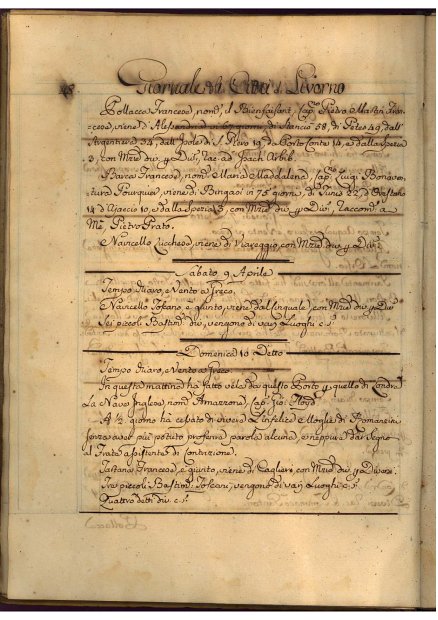 48 Giornale della Città di Livorno
Pollacca Francese, nom.ª il Bienfaisant, Cap.º Pietro Martin Fran-
cese, viene d'Alessandria in 69 giorni, di Stancio 58, di Poteo 49, dall'
Argentiera 34, dall'Isole di S. Piero 19, da Porto Conte 14, e dalla Spezia
3, con Mrzie div. p. Div.ⁱ, rac. ad Joach Arbib.
Barca Francese, nom.ª Maria Maddalena, Cap.º Luigi Bonaven-
tura Fourquier, viene di Bingasi in 75 giorni, di Tunes 22, d'Oristano
14, d'Ajaccio 10, e dalla Spezia 3, con Mrzie div. p. Div.ⁱ, raccom. a
M.ʳ Pietro Prato.
Navicello Lucchese, viene di Viareggio, con Mrzie div. p. Div.ⁱ
Sabato 9 Aprile
Tempo chiaro, e Vento a Greco.
Navicello Toscano è giunto, viene dal con Mrzie div. p. Div.ⁱ
Sei piccoli Bastim.ⁱ div. vengono di varj Luoghi c.s.
Domenica 10 Detto
Tempo chiaro, e Vento a Greco.
In questa mattina ha fatto vela da questo Porto p. quello di Londra
La Nave Inglese nom.ª Amazzone, Cap.º Gio.
A ½ giorno ha cessato di vivere l'infelice Moglie di Pomancia
senza aver più potuto proferir parola alcuna, e neppure dar segno
al Frate assistente di contrizione.
Tartana Francese, è giunta, viene di Caglieri con Mrzie div. p. Diversi.
Tre piccoli Bastim.ⁱ Toscani, vengono di varj Luoghi c.s.
Quattro detti div. c.s.